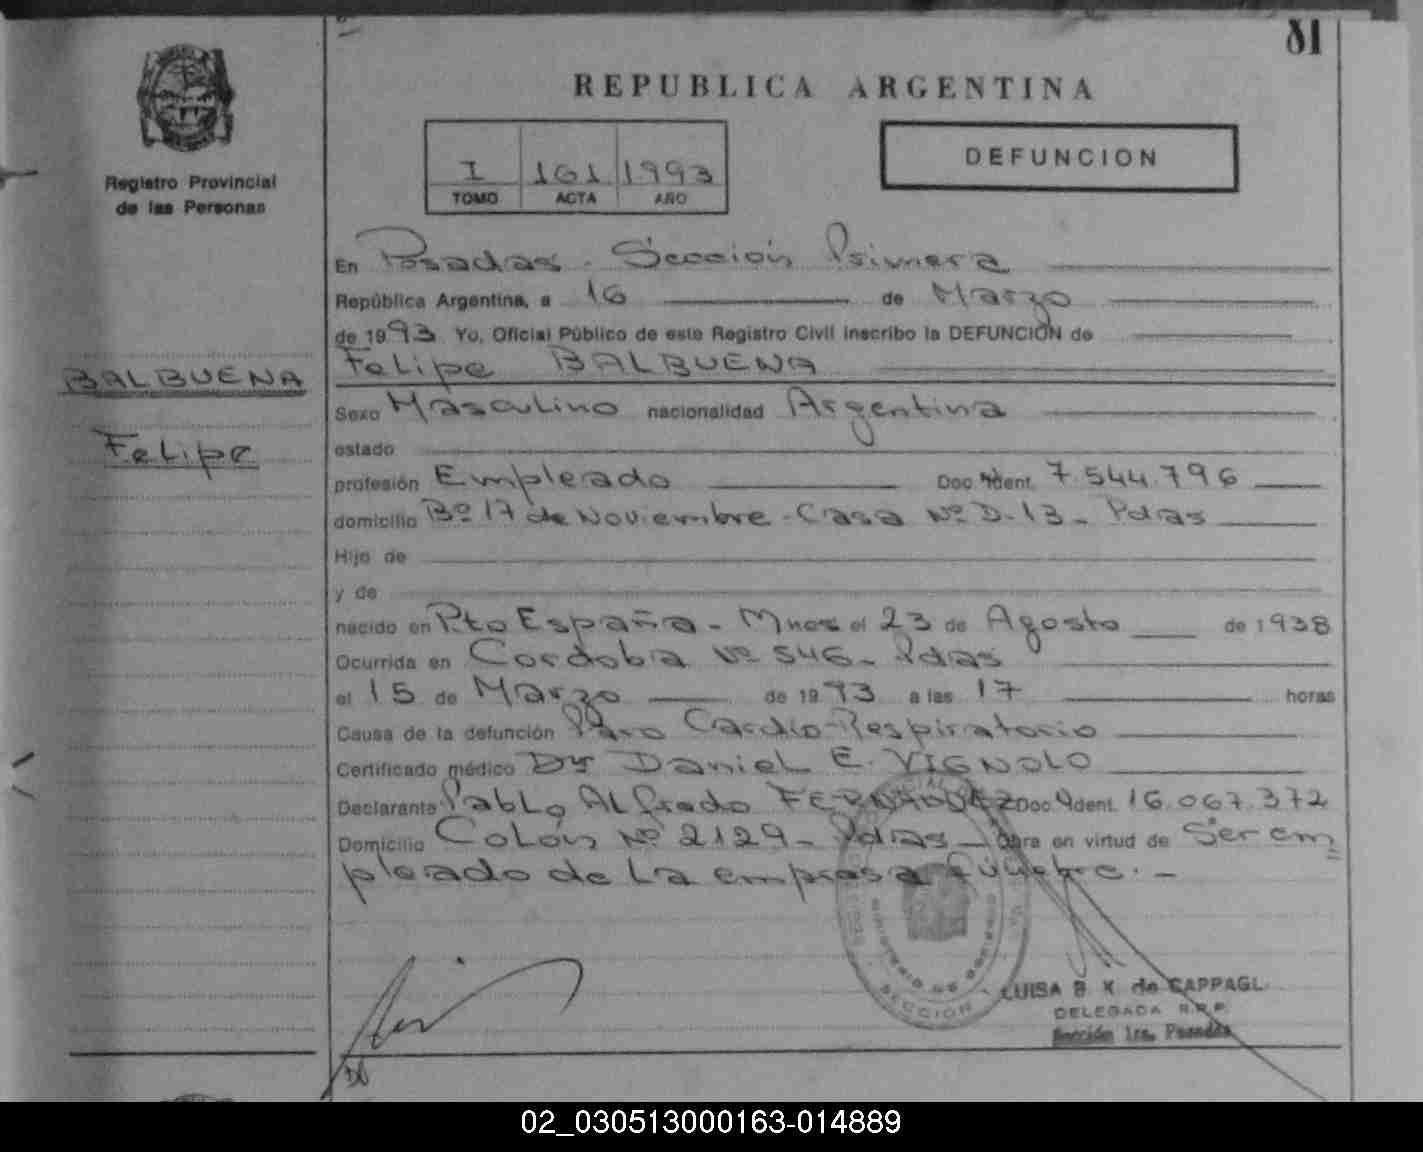 81
REPUBLICA ARGENTINA
Registro Provincial
de las Personas
I 161 1993
TOMO ACTA AÑO
DEFUNCION
En Posadas - Sección Primera
República Argentina, a 16 de Marzo
de 1993 Yo, Oficial Público de este Registro Civil inscribo la DEFUNCIÓN de
Felipe BALBUENA
BALBUENA
Felipe
Sexo Masculino nacionalidad Argentina
estado
profesión Empleado Doc. Ident. 7.544.796
domicilio Bº 17 de Noviembre - Casa Nº D-13 - Pdas
Hijo de
y de
nacido en Pto España - Mnes el 23 de Agosto de 1938
Ocurrida en Cordoba Nº 546 - Pdas
el 15 de Marzo de 1993 a las 17 horas
Causa de la defunción Paro Cardio-Respiratorio
Certificado médico Dr Daniel E. VIGNOLO
Declarante Pablo Alfredo Doc. Ident. 16.067.372
Domicilio Colón Nº 2129 - Pdas - Obra en virtud de Ser em
pleado de la empresa fúnebre. -
SECCION
LUISA B K de CAPPAGL
DELEGADA R.P.P.
Sección 1ra. Posadas
02_030513000163-014889